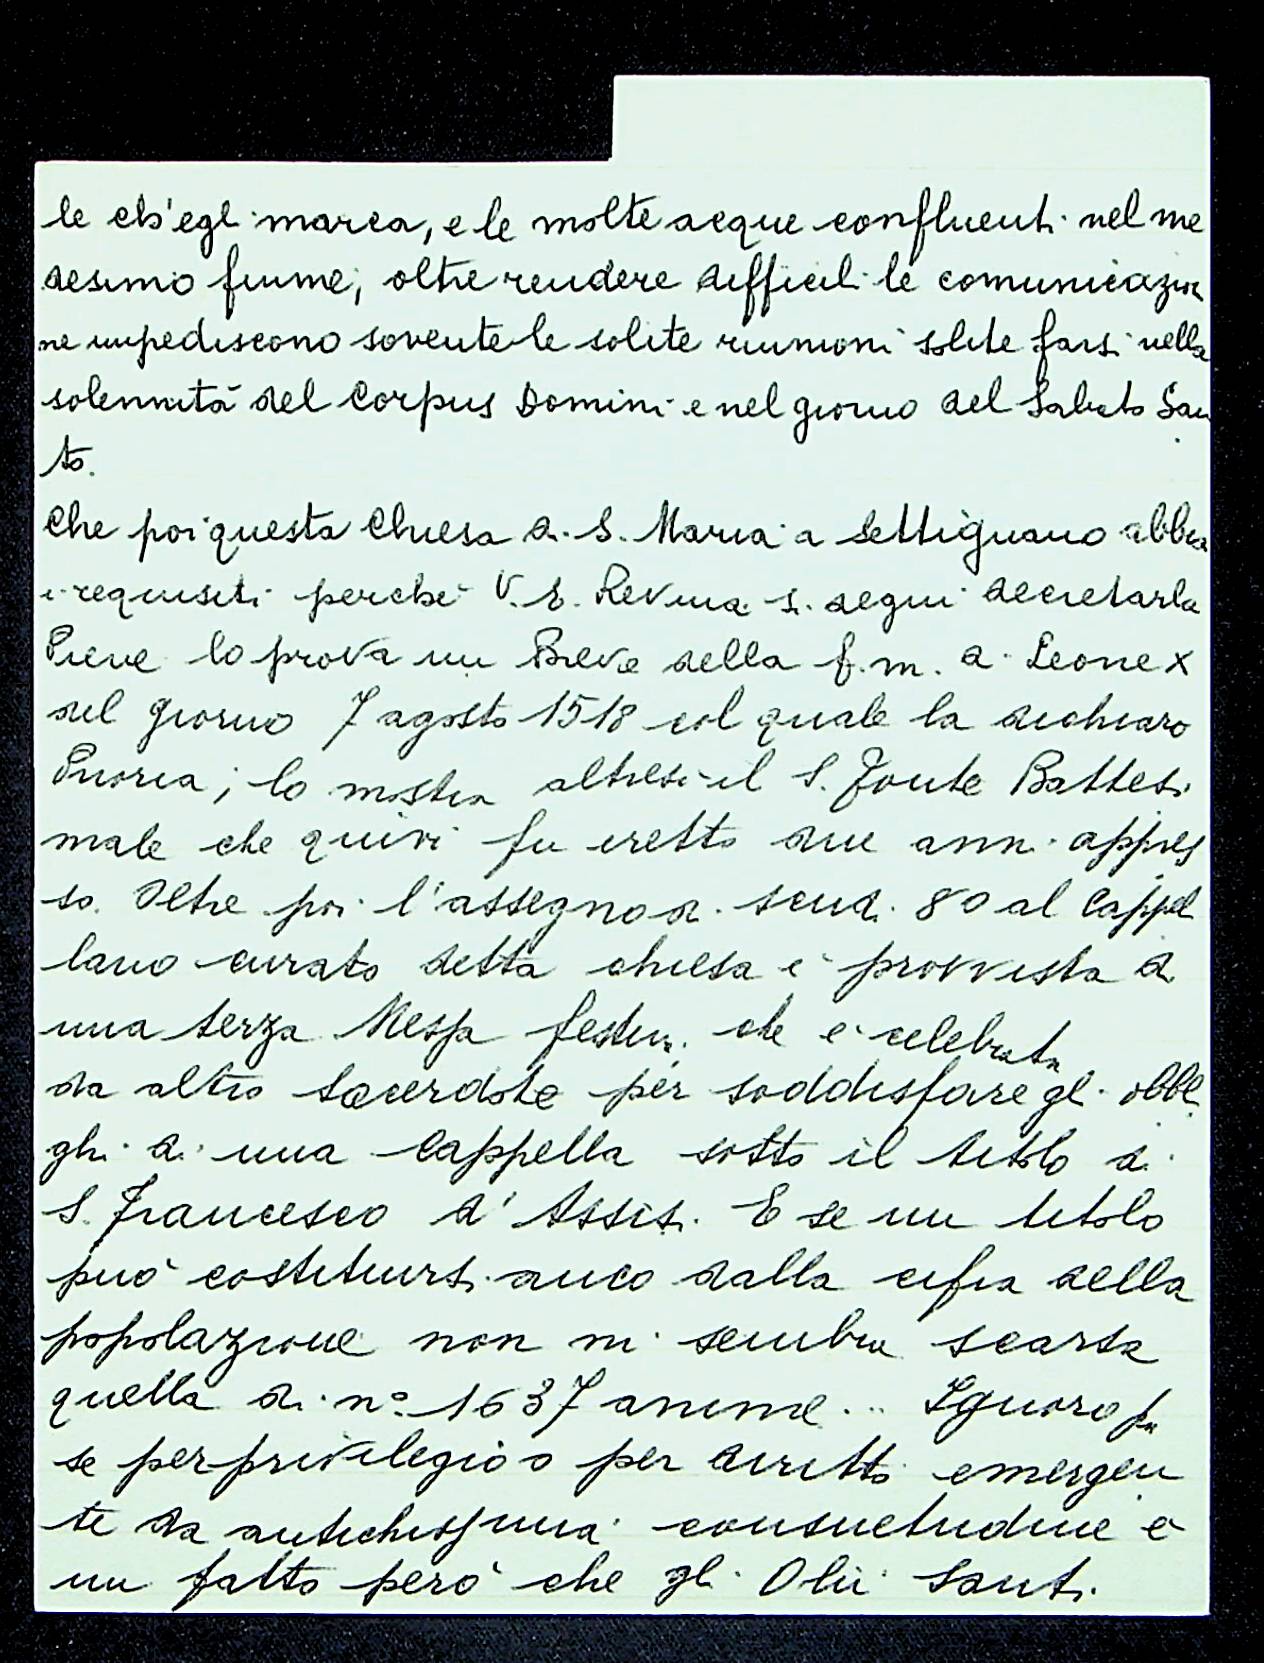 le ch'egli marca, e le molte acque confluenti nel me
desimo fiume, oltre rendere difficili le comunicazio
ne impediscono sovente le solite riunioni solite farsi nella
solennità del Corpus Domini e nel giorno del Sabato San
to.
Che poi questa Chiesa di S. Maria a Settignano abbia
i requisiti perchè V. E. Rev.ma si degni decretarla
Pieve lo prova un Breve della f. m. di Leone X
del giorno 7 agosto 1518 col quale la dichiarò
Prioria; lo mostra altresì il S. Fonte Battesi
male che quivi fu eretto due anni appres
so. Oltre poi l'assegno di scudi 80 al Cappel
lano curato detta chiesa è provvista di
una terza Messa festiva che è celebrata
da altro sacerdote per soddisfare gli obbli
ghi di una Cappella sotto il titolo di
S. Francesco d'Assisi. E se un titolo
può costituirsi anco dalla cifra della
popolazione non mi sembra scarsa
quella di nº 1637 anime... Ignoro poi
se per privilegio o per diritto emergen
te da antichissima consuetudine è
un fatto però che gli Olii Santi